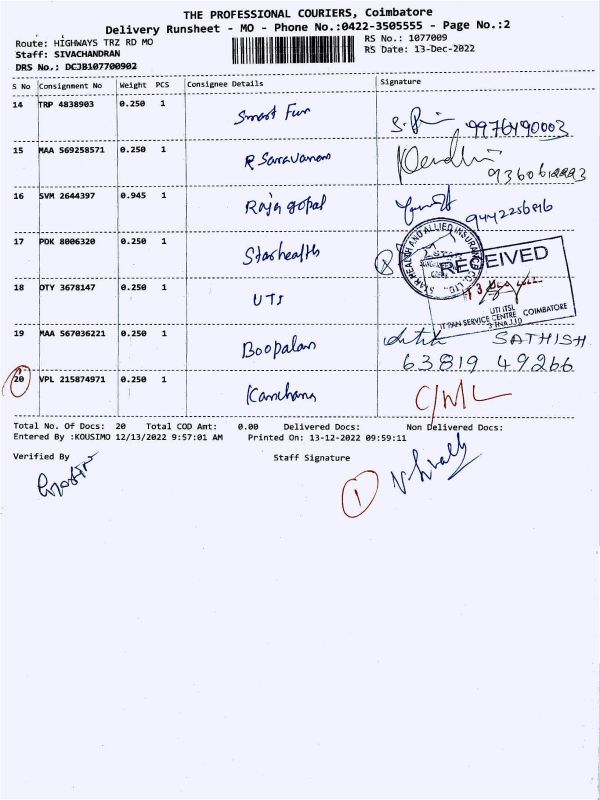 THE PROFESSIONAL COURIERS, Coimbatore
Delivery Runsheet - MO - Phone No.:0422-3505555 - Page No.:2
Route: HIGHWAYS TRZ RD MO
RS No.: 1077009
Staff: SIVACHANDRAN
RS Date: 13-Dec-2022
DRS No.: DCJB107700902
S No Consignment No Weight PCS Consignee Details Signature
14 TRP 4838903 0.250 1 Smart Fun
9976490003
15 MAA 569258571 0.250 1 R Saravanan
16 SVM 2644397 0.945 1 Rajagopal
9442256816
17 PDK 8006320 0.250 1 Starhealth
STAR HEALTH AND ALLIED INSURANCE CO. LTD.
RECEIVED
18 DTY 3678147 0.250 1 UTS
UTI ITSL
IT PAN SERVICE CENTRE COIMBATORE
19 MAA 567036221 0.250 1 Boopalan SATHISH
63819 49266
20 VPL 215874971 0.250 1 Kanchana C/ML
Total No. Of Docs: 20 Total COD Amt: 0.00 Delivered Docs: Non Delivered Docs:
Entered By :KOUSIMO 12/13/2022 9:57:01 AM Printed On: 13-12-2022 09:59:11
Verified By Staff Signature
1